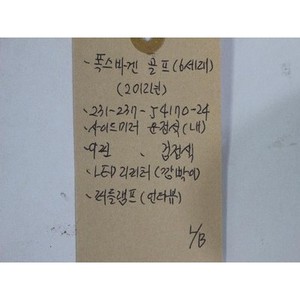 - 폭스바겐 골프(6세대)
(2012년)
- 231-237-54170-24
- 사이드미러 운전석(내)
- 9핀 、 검정색
- LED 리피터(깜빡이)
- 퍼들램프(언더뷰)
L/B